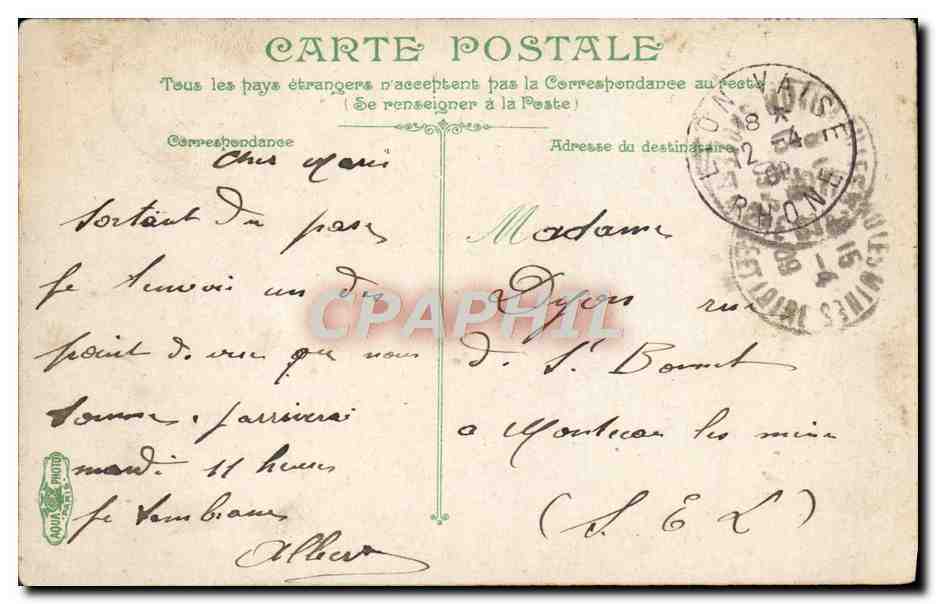 CARTE POSTALE
Tous les pays étrangers n'acceptent pas la Correspondance au recto
(Se renseigner à la Poste)
Correspondance
Adresse du destinataire
cher Marie
sortant du pass
je tenvoie un des
point de vue que nous
somme. j'arriverai
mardi 11 heures
je tembrasse
Albert
Madame
Dyon rue
d. St Bonnet
a Montceau les mine
(S. E L)
LYON VAISE
8 *
12 - 4
09
RHONE
LES MINES
15
-4
09
CPAPHIL
AQUA PHOTO
PARIS